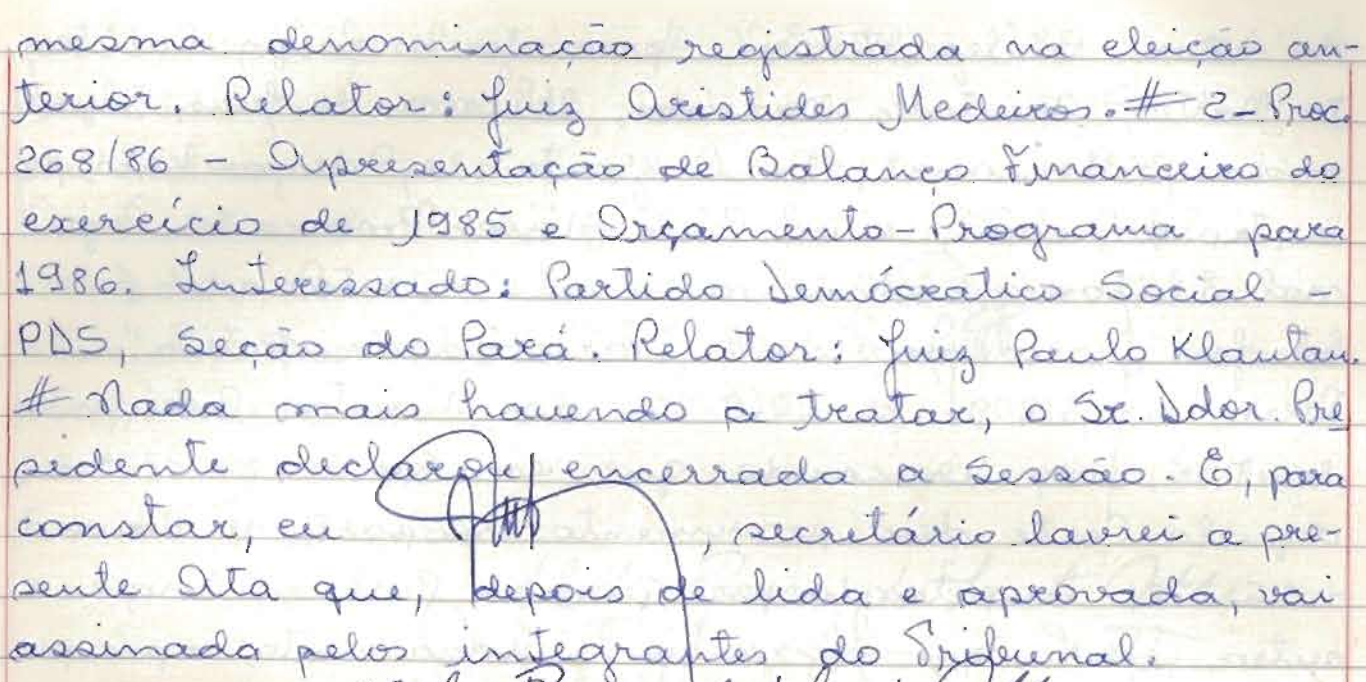 mesma denominação registrada na eleição an-
terior. Relator: Juiz Aristides Medeiros. # 2 - Proc.
268/86 - Apresentação de Balanço Financeiro do
exercício de 1985 e Orçamento-Programa para
1986. Interessado: Partido Demócratico Social -
PDS, Seção do Pará. Relator: Juiz Paulo Klautau.
# Nada mais havendo a tratar, o Sr. Ddor. Pre
sidente declarou encerrado a Sessão. E, para
constar, eu , secretário lavrei a pre-
sente Ata que, depois de lida e aprovada, vai
assinada pelos integrantes do Tribunal.